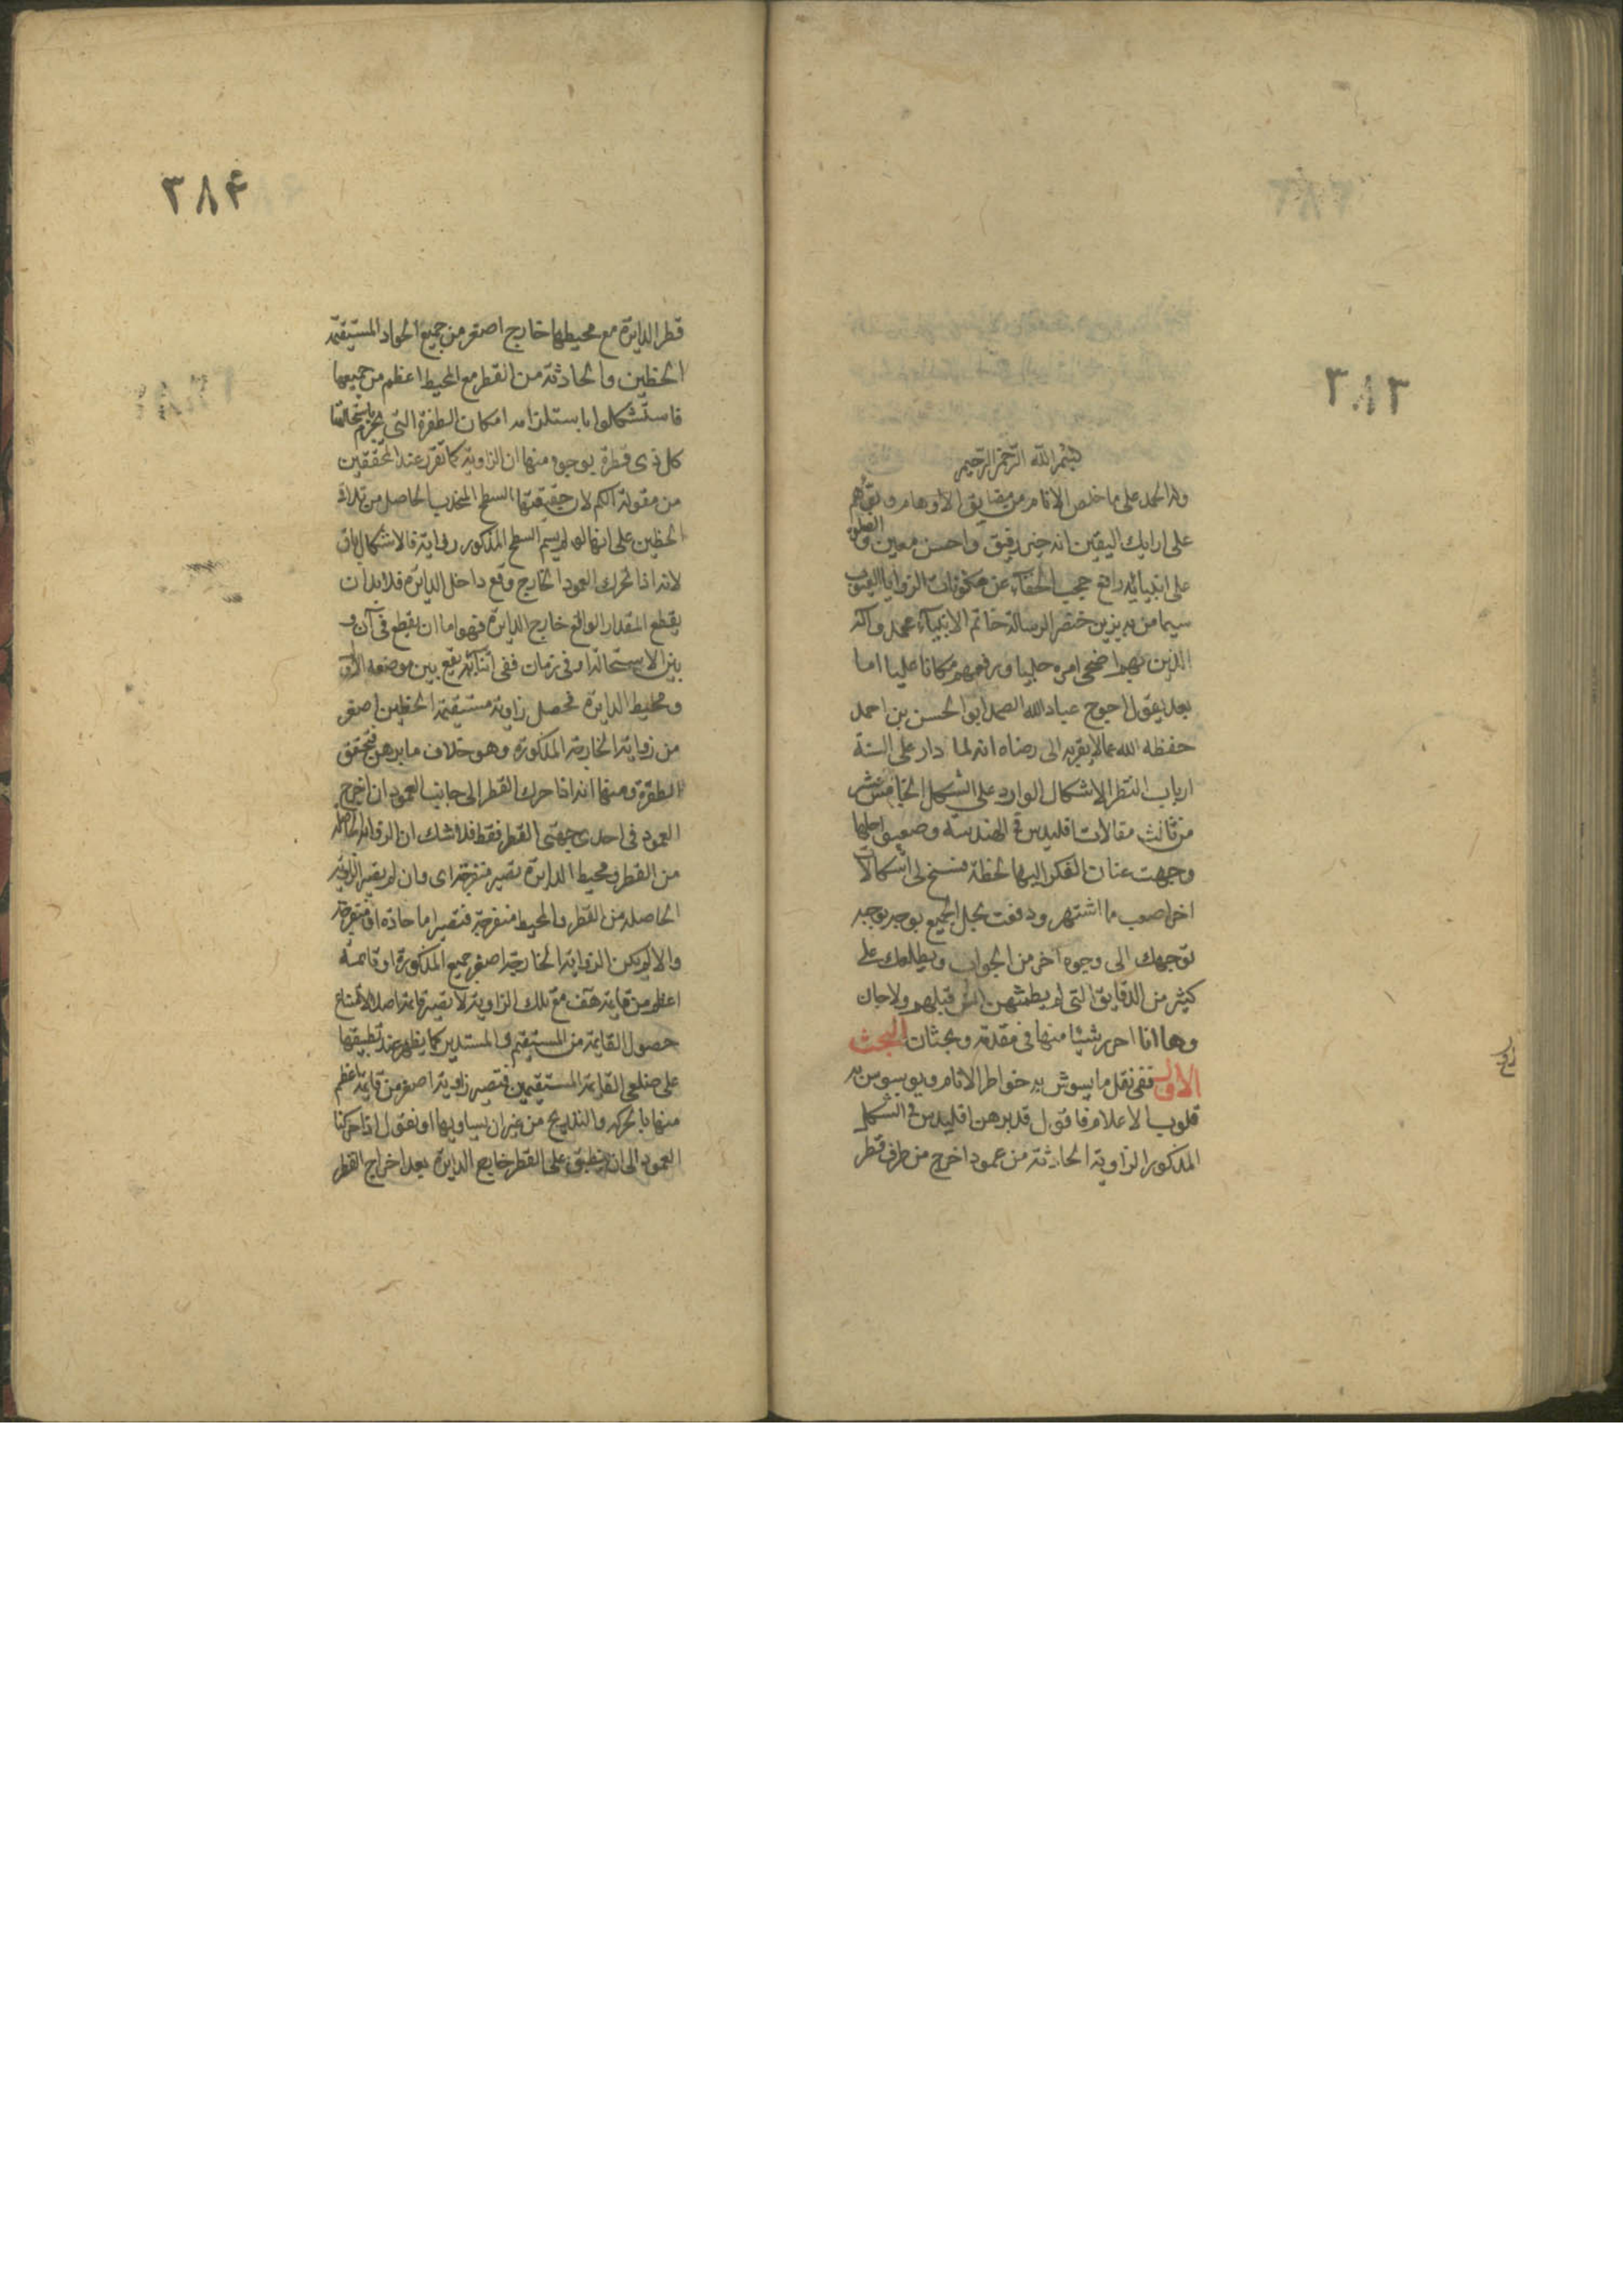 ٣٨٣
بسم الله الرحمن الرحيم
وله الحمد على ما خلص الانام من مضايق الاوهام و
على ارايك اليقين انه خير رفيق واحسن معين والصلوة
على انبيائه رافع حجب الخفاء عن مكنونات الزوايا
سيما من به زين خنصر الرسالة خاتم الانبياء محمد وآله
الذين بهم اضحى امره جليا ورفعهم مكانا عليا اما
بعد يقول احوج عباد الله الصمد ابو الحسن بن احمد
حفظه الله عما لا يقربه الى رضاه انه لما دار على السنة
ارباب النظر الاشكال الوارد على الشكل الخامس عشر
من ثالث مقالات اقليدس في الهندسة وصعب حلها
وجهت عنان الفكر اليها لحظة فسنح لي اشكالات
اخر اصعب مما اشتهر ودفعت بحل الجميع بوجه يوجه
توجهك الى وجوه اخر من الجواب ويطلعك على
كثير من الدقايق التي لم يطمثهن انس قبلهم ولا جان
وها انا احرر شيئا منها في مقدمة وبحثان البحث
الاول ففي نقل ما يشوش به خواطر الانام ويوسوس به
قلوب الاعلام فاقول قد برهن اقليدس في الشكل
المذكور الزاوية الحادثة من عمود اخرج من طرف قطر
٣٨۴
قطر الدايرة مع محيطها خارج اصغر من جميع الحواد المستقيمة
الخطين والحادثة من القطر مع المحيط اعظم من جميعها
فاستشكلوا ما يستلزامه امكان الطفرة التي يجزم باستحالتها
كل ذي فطرة بوجوه منها ان الزاوية كما تقرر عند المحققين
من مقولة الكم لان حقيقتها السطح المنحدب الحاصل من تلاقى
الخطين على انهما لم يرسم السطح المذكور زواية فالاشكال باق
لانه اذا تحرك العمود الخارج وقع داخل الدايرة فلا بد ان
يقطع المقدار الواقع خارج الدايرة فهو اما ان يقطع في آن و
بين الاستحالة او في زمان ففي اثنائه يقع بين موضعه الاول
ومحيط الدايرة فحصل زاوية مستقيمة الخطين اصغر
من زواية الخارجة المذكورة وهو خلاف ما برهن فتحقق
الطفرة ومنها انه اذا حرك القطر الى جانب العمود ان اخرج
العمود في احدى جهتي القطر فقط فلا شك ان الزواية الحاصلة
من القطر ومحيط الدايرة تصير منفرجة اى وان لم يصير الزاوية
الحاصلة من القطر والمحيط منفرجة فتصير اما حادة او منفرجة
والا لم يكن الزواية الخارجة اصغر جميع المذكورة او قائمة
اعظم من قايمة هف مع تلك الزاوية لا يصير قايمة اصلا لامتناع
حصول القايمة من المستقيم والمستدير كما يظهر عند تطبيقها
على ضلعى القايمة المستقيمين فتصير زاوية اصغر من قايمة اعظم
منها بالحركه والتدريج من غير ان يساويها او نقول اذا حركنا
العمود الى ان ينطبق على القطر خارج الدايرة بعد اخراج القطر